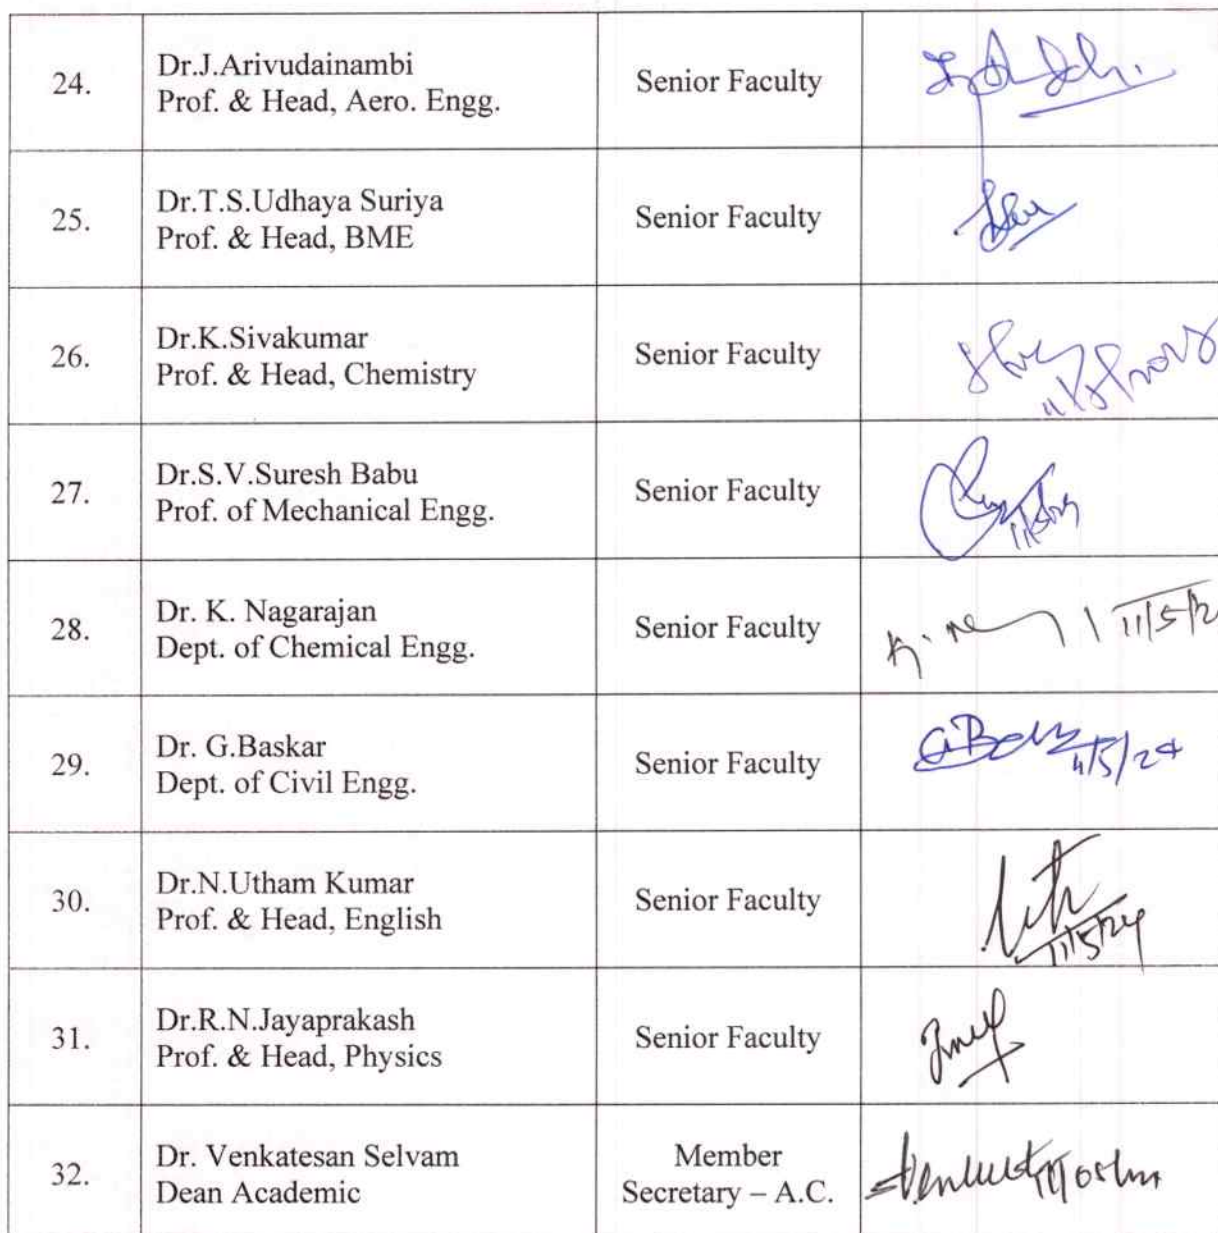 24.
Dr.J.Arivudainambi
Prof. & Head, Aero. Engg.
Senior Faculty
25.
Dr.T.S.Udhaya Suriya
Prof. & Head, BME
Senior Faculty
26.
Dr.K.Sivakumar
Prof. & Head, Chemistry
Senior Faculty
27.
Dr.S.V.Suresh Babu
Prof. of Mechanical Engg.
Senior Faculty
28.
Dr. K. Nagarajan
Dept. of Chemical Engg.
Senior Faculty
11/5/2
29.
Dr. G.Baskar
Dept. of Civil Engg.
Senior Faculty
11/5/24
30.
Dr.N.Utham Kumar
Prof. & Head, English
Senior Faculty
11/5/24
31.
Dr.R.N.Jayaprakash
Prof. & Head, Physics
Senior Faculty
32.
Dr. Venkatesan Selvam
Dean Academic
Member
Secretary – A.C.